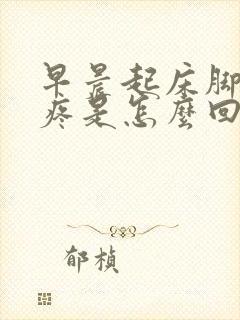 早晨起床脚
疼是怎麽回
郁楨